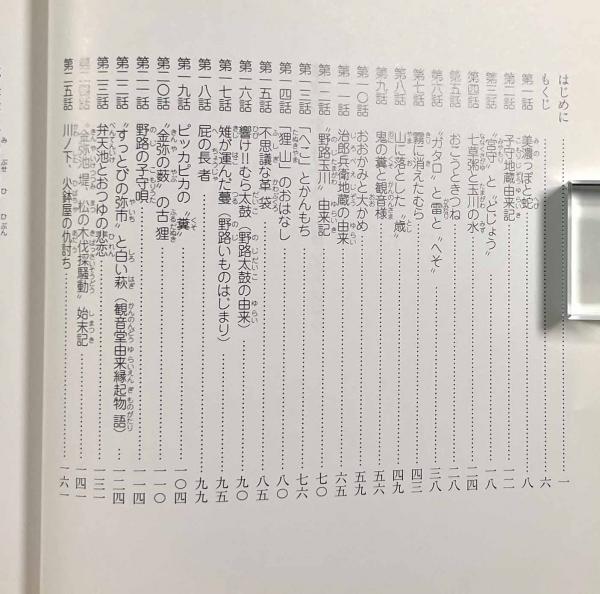 はじめに 一
もくじ 六
第一話 美濃っぽと蛇 八
第二話 子守地蔵由来記 一二
第三話 “宮守”と“どじょう” 一八
第四話 七草粥と玉川の水 二四
第五話 おこうときつね 二八
第六話 “ガタロ”と雷と“へそ” 三八
第七話 霧に消えたむら 四三
第八話 山に落とした“歳” 四九
第九話 鬼の糞と観音様 五六
第一〇話 おおかみと大かめ 五九
第一一話 治郎兵衛地蔵の由来 六五
第一二話 “野路玉川”由来記 七〇
第一三話 「へこ」とかんもち 七七
第一四話 「狸山」のおはなし 八〇
第一五話 不思議な革袋 八五
第一六話 響け!!むら太鼓(野路太鼓の由来) 九〇
第一七話 雉が運んだ蔓(野路いものはじまり) 九五
第一八話 屁の長者 九九
第一九話 ピッカピカの“糞” 一〇四
第二〇話 “金弥の薮”の古狸 一一〇
第二一話 野路の子守唄 一一四
第二二話 “すっとびの弥市”と白い萩(観音堂由来縁起物語) 一二四
第二三話 弁天池とおつゆの悲恋 一三一
第二四話 “金弥池堤、松の木伐採騒動”始末記 一四一
第二五話 川ノ下、火鉢屋の仇討ち 一六一